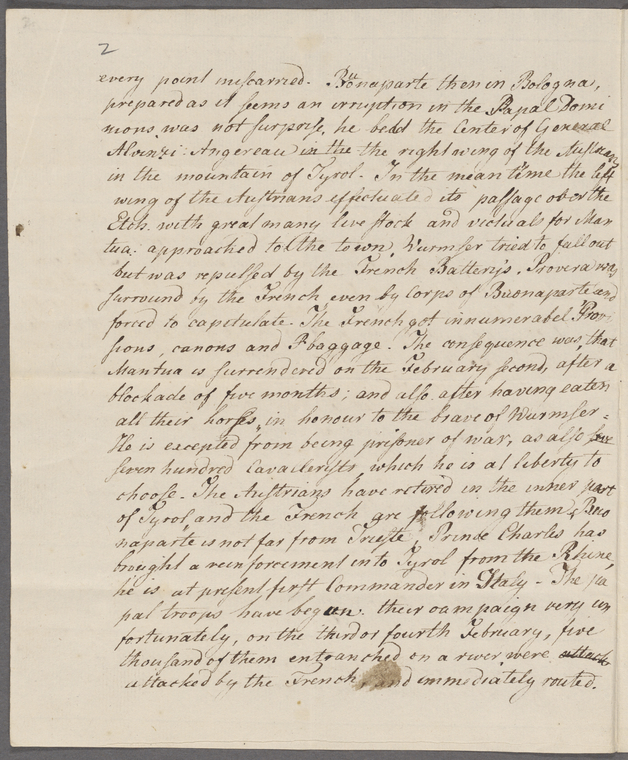 2
every point miscarried. Buonaparte then in Bologna,
prepared as it seems an irruption in the Papal Domi
nions was not surprise, he bedd the Center of General
Alvinzi: Angereau in the the right wing of the Austrians
in the mountain of Tyrol. In the mean time the left
wing of the Austrians effectuated its passage obor the
Etch. with great many live stock and victuals for Man
tua: approached to the town. Wurmser tried to fall out
but was repulsed by the French Battery's, Provera was
surround by the French even by Corps of Buonaparte and
forced to capitulate. The French got innumerabel Prov
sions, canons and baggage. The consequence was, that
Mantua is surrendered on the February second, after a
blockade of five months; and also after having eaten
all their horses, in honour to the brave of Wurmser =
He is excepted from being prisoner of war, as also
seven hundred Cavailerists, which he is al liberty to
choose. The Austrians have retired in the inner part
of Tyrol and the French are following them, Buo
naparte is not far from Trieste, Prince Charles has
brought a reinforcement in to Tyrol from the Rhine,
he is at present first Commander in Italy - The pa
pal troops have begun: their campaign very un
fortunately, on the third or fourth February, five
thousand of them entranched on a river were attack
attacked by the French, and immediately routed.